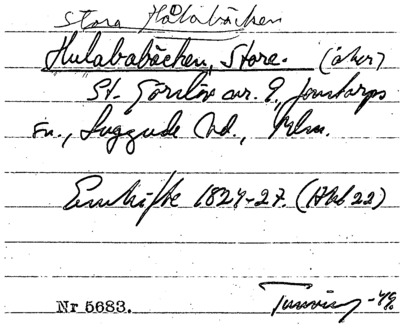 Stora Hålabäcken
Hulababäcken, Store. (åker)
St. Görslöv nr. 9, Jonstorps
sn., Luggude hd., Mlm.
Enskifte 1824-27. (Akt 22)
Nr 5683. -49